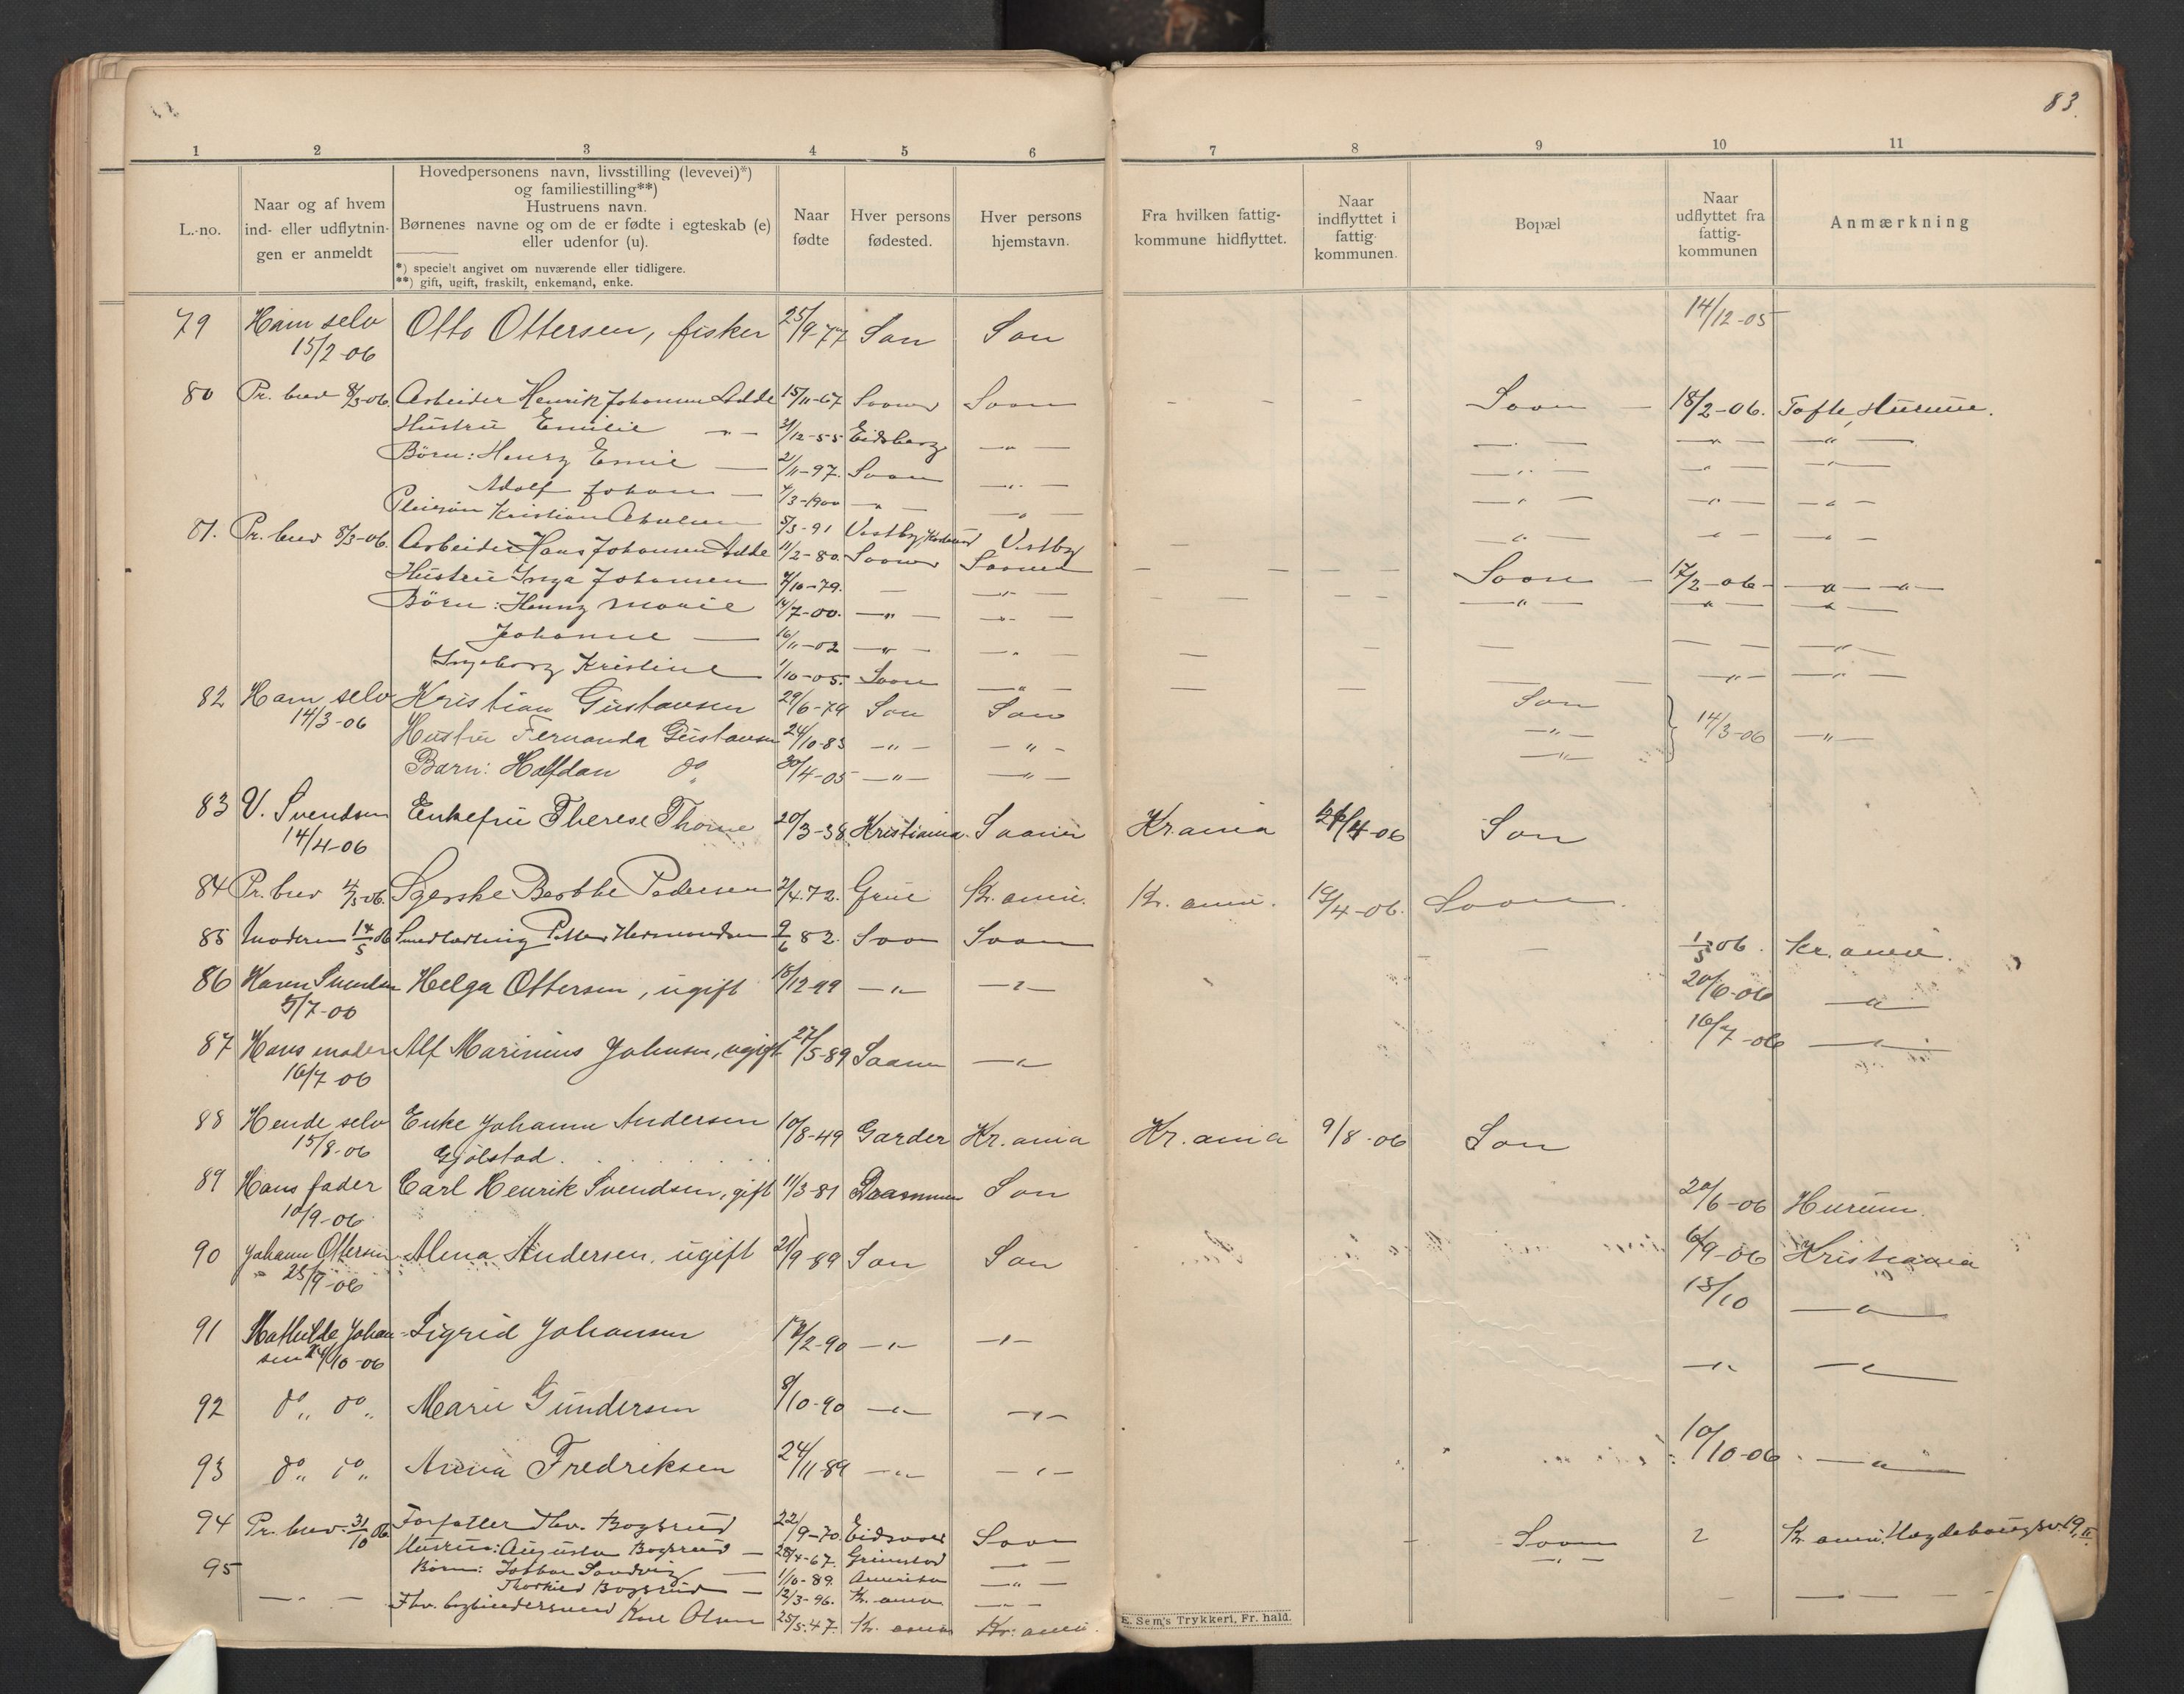 83.
1 2 3 4 5 6 7 8 9 10 11
L.-no.
Naar og af hvem ind- eller udflytningen er anmeldt
Hovedpersonens navn, livsstilling (levevei)*)
og familiestilling**)
Hustruens navn.
Børnenes navne og om de er fødte i egteskab (e)
eller udenfor (u).
*) specielt angivet om nuværende eller tidligere.
**) gift, ugift, fraskilt, enkemand, enke.
Naar fødte
Hver persons fødested.
Hver persons hjemstavn.
Fra hvilken fattig-kommune hidflyttet.
Naar indflyttet i fattig-kommunen.
Bopæl
Naar udflyttet fra fattig-kommunen
Anmærkning
79 Ham selv 15/2-06 Otto Ottersen, fisker 25/9-77 Son Son 14/12-05
80 Pr. brev 8/3-06. Arbeider Henrik Johansen 15/11-67 Sooner Soon - - - Soon - 18/2-06. Tofte, Hurum.
Hustru Emilie -"- 21/12-55 Eidsberg -"- -"- -"- -"-
Børn: Henry Emil - 2/11-97. Soon -"- -"- -"- -"-
Adolf Johan - 7/3-1900 -"- -"- -"- -"- -"-
Pleiesøn Kristian 5/3-91 Vestby Vestby -"- -"- -"-
81. Pr. brev 8/3-06. Arbeider Hans Johansen 11/2-80. Sooner Sooner - - - Soon - 17/2-06 - -"- -"-
Hustru Inga Johansen 4/10-79. - -"- -"- -"- -"-
Børn: Henny Marie 14/7-00. -"- -"-
Johanne - 16/11-02 -"- -"-
Ingeborg Kristine 1/10-05. Soon -"-
82 Ham selv 14/3-06 Kristian Gustavsen 29/6-79 Son Son - - Son 14/3-06 -"-
Hustru Fernanda Gustavsen 24/10-83 -"- -"- -"-
Barn: Halfdan do 30/4-05 -"- -"- -"-
83 V. Svendsen 14/4-06 Enkefru Therese Thorne 20/3-38 Kristiania. Sooner Kr.ania /4-06 Son
84 Pr. brev 4/5-06. Berthe Pedersen 2/4.72. Grue Kr. ania. Kr. ania. 19/4-06. Soon.
85 Moderen 14/5 06 Smedlærling Petter Hermansen 9/6 82. Soon Soon 1/5 06. Kr. ania.
86 Karen Svendsen 5/7-06 Helga Ottersen, ugift 18/12-99 -"- -"- 20/6-06 -"-
87 Hans moder 16/7-06 Alf Marinius Johnsen, ugift 27/5-89 Saaner -"- 16/7-06 -"-
88 Hende selv 15/8-06 Enke Johanne Andersen 10/8-49 Garder Kr. ania Kr. ania 9/8-06 Son
Gjølstad.
89 Hans fader 10/9-06 Carl Henrik Svendsen, gift 11/3-81 Drammen Son 20/6-06 Hurum.
90 Johann Ottersen 25/9-06 Alma Andersen, ugift 21/9 89 Son Son 6/9-06 Kristiania
91 Mathilde Johansen 24/10-06 Sigrid Johansen 13/2-90 -"- -"- 15/10 -"-
92 do do Marie Gundersen 8/10-90 -"- -"- -"- -"-
93 do do Anna Fredriksen 24/11 89 -"- -"- 10/10-06 -"-
94 Pr. brev. 31/10 06 Forfatter Thv. Bogsrud 22/9-70 Eidsvold Soon - Soon Kr. ania.
Hustru: Augusta Bogsrud - 28/4-67. Grimstad -"- -"-
95 Børn: Sandvig - 1/10-89. Amerika -"-
Bogsrud - 12/3-96. Kr. ania -"-
-"- Olsen 25/5-47. Kr. ania Kr. ania.
E. Sem's Trykkeri, Fr. hald.